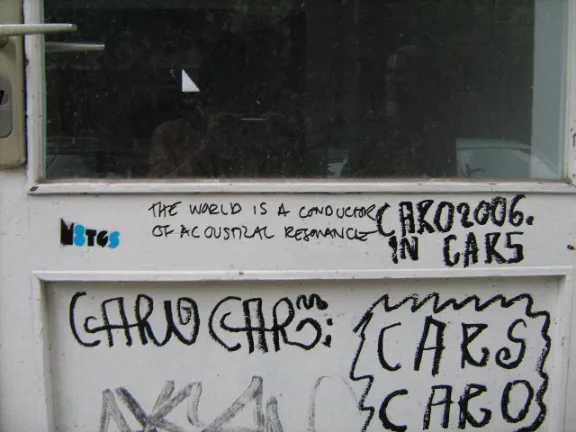 THE WORLD IS A CONDUCTOR
OF ACOUSTICAL RESONANCE
CARO2006.
IN CARS
CARO CARO:
CARS
CARO